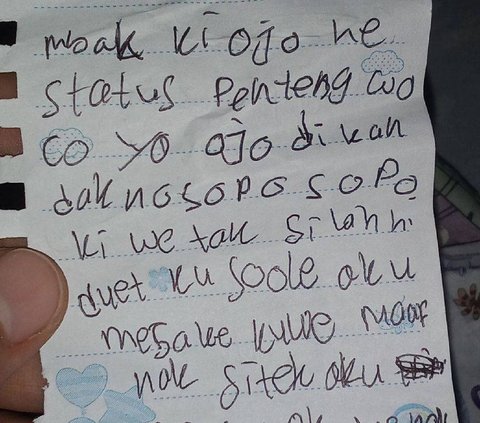 mbak ki ojo ne
status Penteng wo
co yo ojo di kan
dak no sopo sopo
ki we tak silahni
duet ku soale aku
mesake kuwe maaf
nak sitek aku